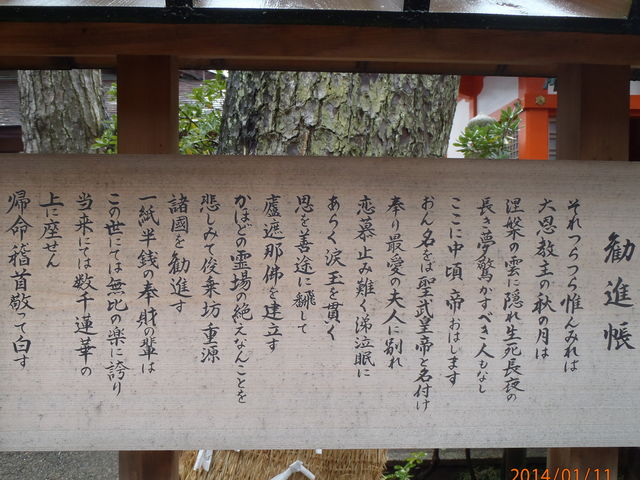 勧進帳
それつらつら惟んみれば
大恩教主の秋の月は
涅槃の雲に隠れ生死長夜の
長き夢驚かすべき人もなし
ここに中頃 帝おはします
おん名をば聖武皇帝と名付け
奉り最愛の夫人に別れ
恋慕止み難く涕泣眠に
あらく涙玉を貫く
思を善途に飜して
廬遮那佛を建立す
かほどの霊場の絶えなんことを
悲しみて俊乗坊重源
諸國を勧進す
一紙半銭の奉財の輩は
この世にては無比の楽に誇り
当来にては数千蓮華の
上に座せん
帰命稽首敬って白す
2014/01/11